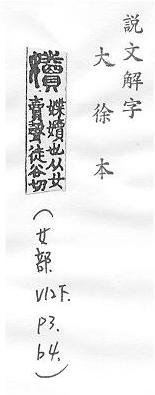 說文解字
大徐本
嬻
媟嬻也从女
賣聲徒谷切
(女部. V12下. P3. 64.)